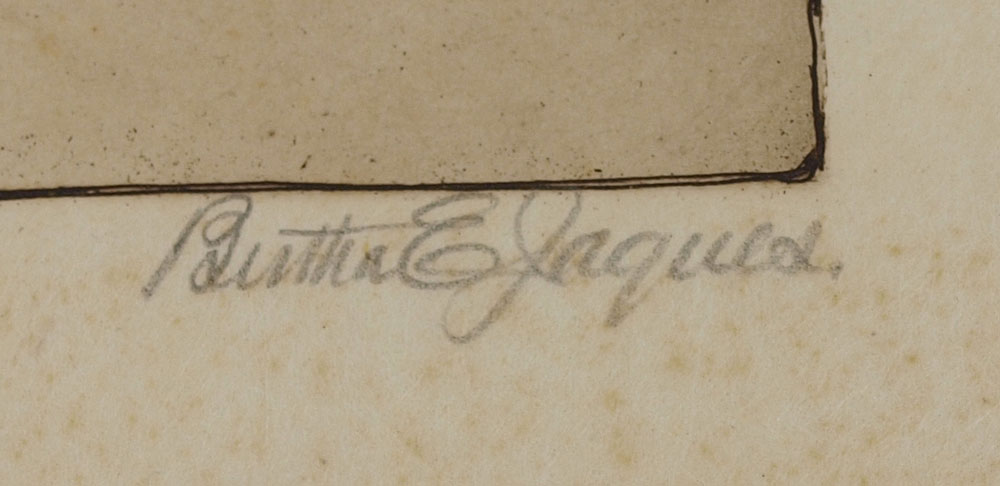 Bertha E Jaques.